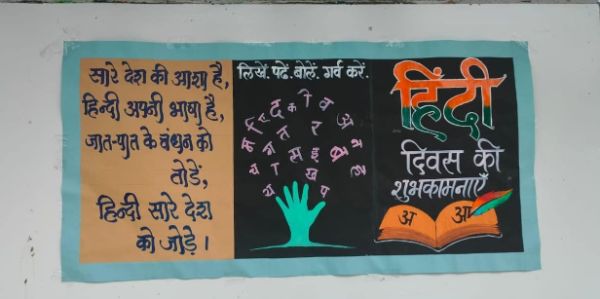 सारे देश की आशा है,
हिन्दी अपनी भाषा है,
जात-पात के बंधन को
तोड़ें,
हिन्दी सारे देश
को जोड़े।
लिखें. पढें. बोलें. गर्व करें.
हिंदी
दिवस की
शुभकामनाएँ
अ आ